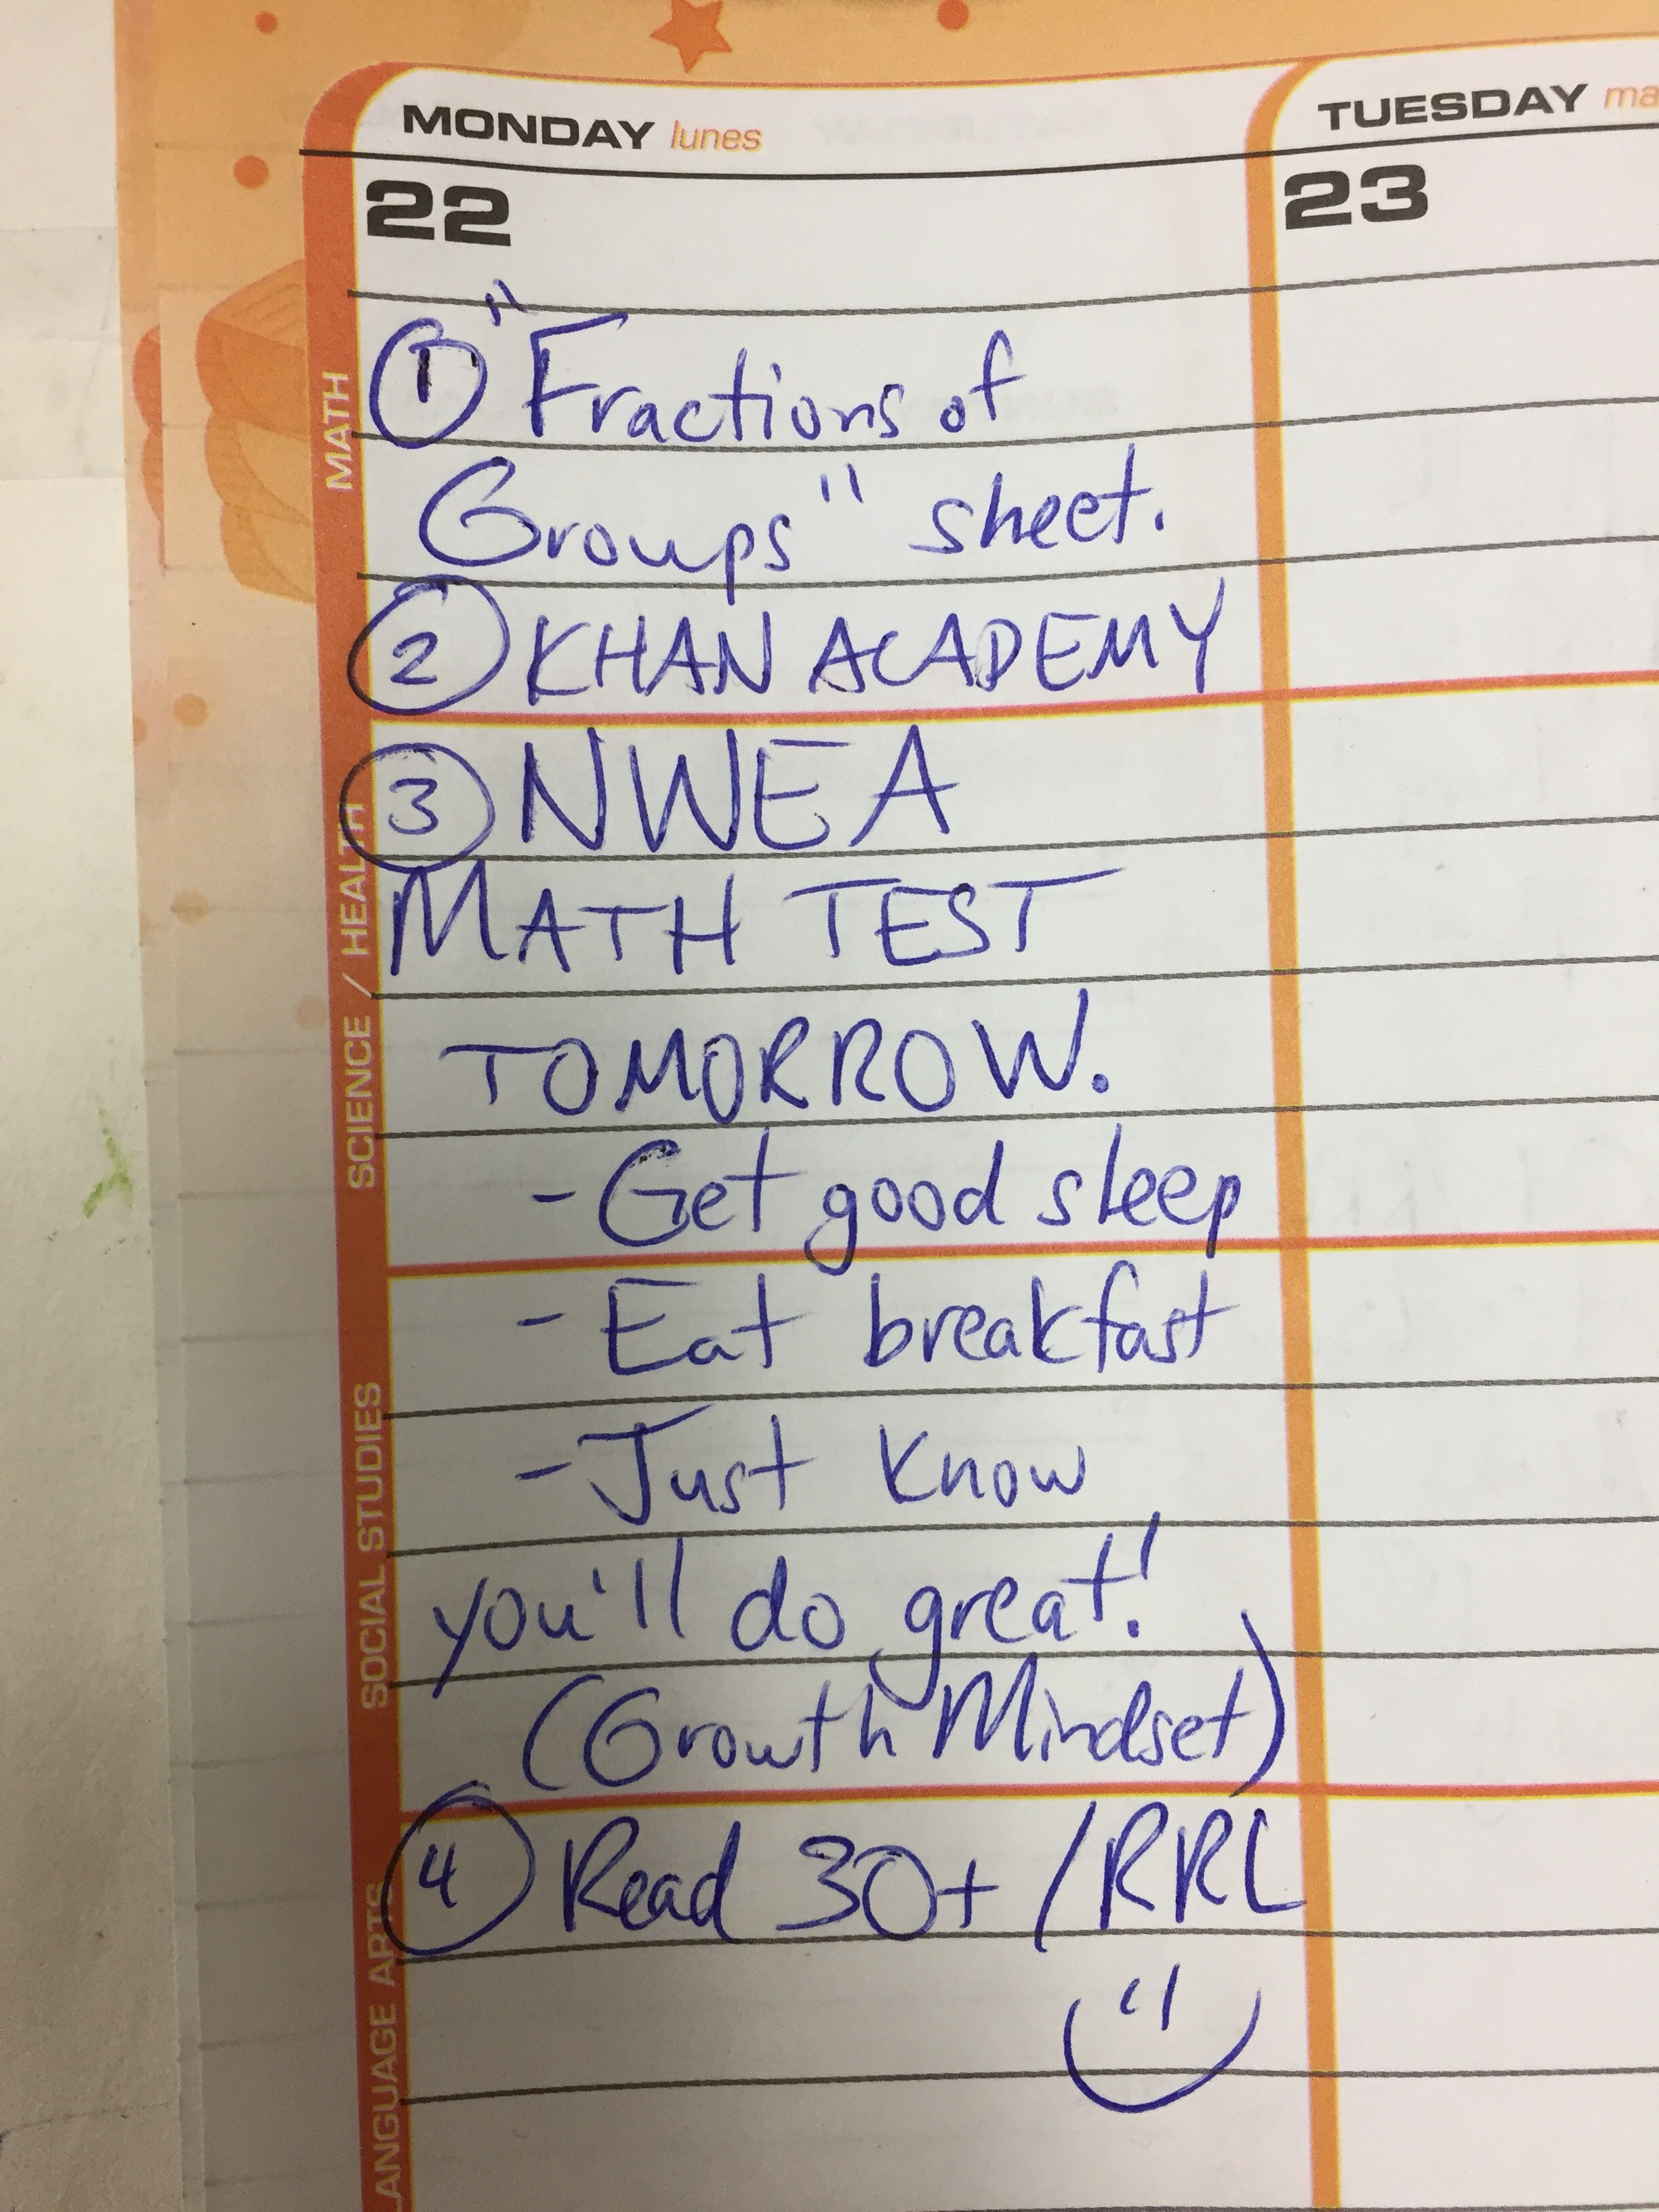 MONDAY lunes
TUESDAY ma
22
23
MATH
① "Fractions of
Groups" sheet.
② KHAN ACADEMY
SCIENCE / HEALTH
③ NWEA
MATH TEST
TOMORROW.
- Get good sleep
SOCIAL STUDIES
- Eat breakfast
- Just know
you'll do great!
(Growth Mindset)
LANGUAGE ARTS
④ Read 30+ /RRL